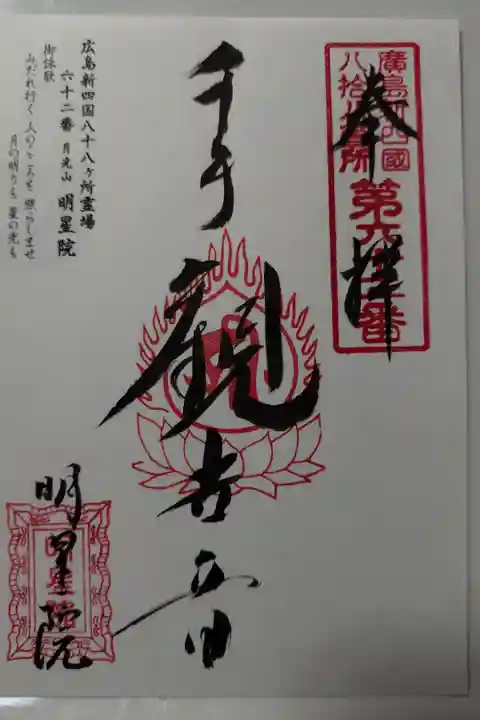 廣島新四國
八拾八ヶ所
第六十二番
奉拝
千手観世音
明星院
広島新四国八十八ヶ所霊場
六十二番 月光山 明星院
御詠歌
みだれ行く 人のこころを 照らしませ
月の明りも 星の光も